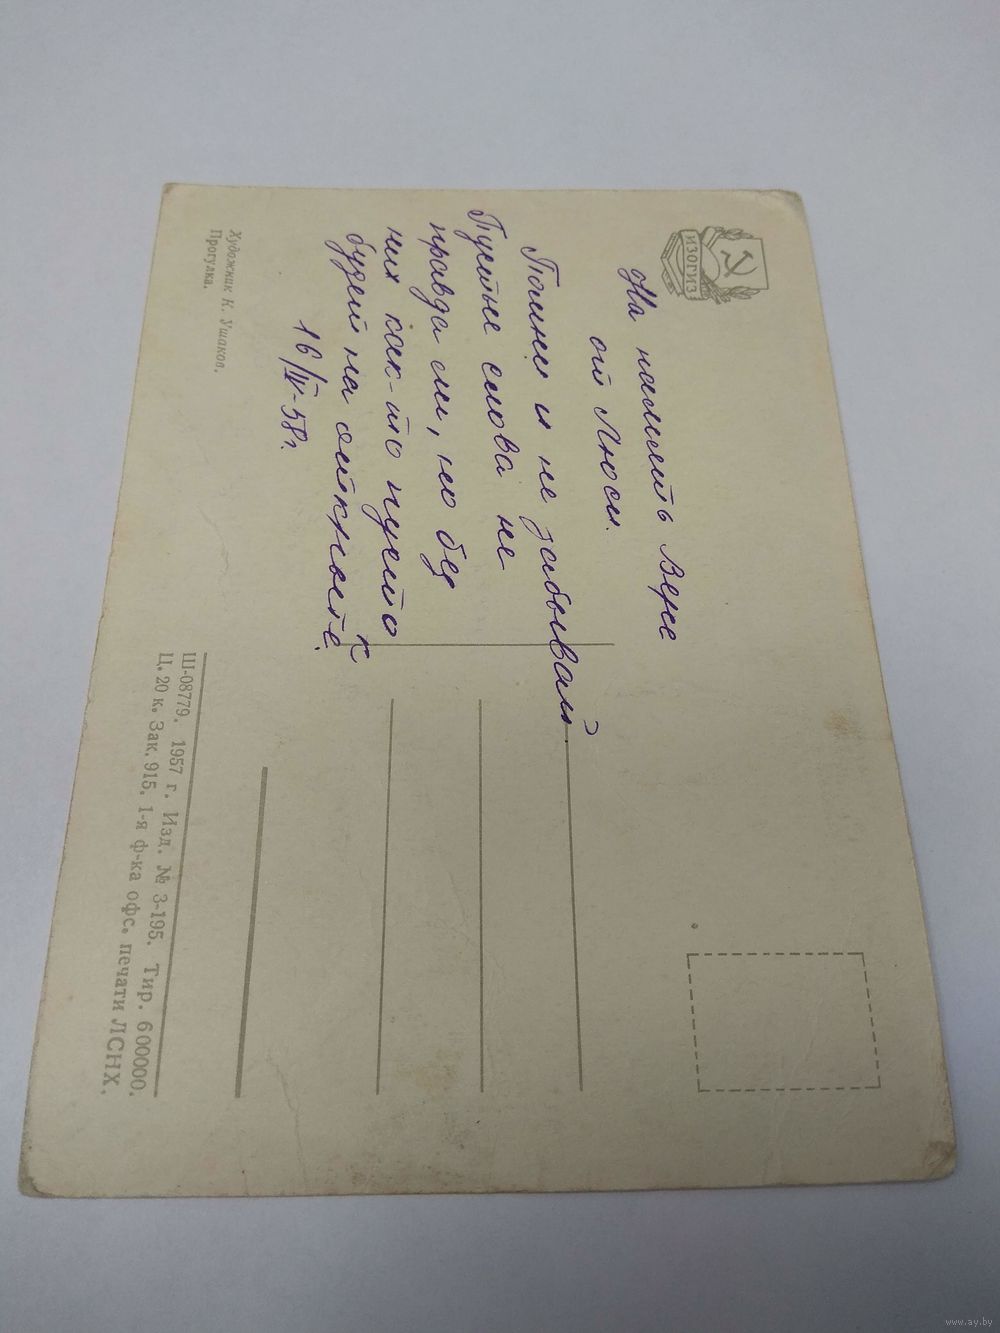 ИЗОГИЗ
На память Вере
от Люси.
Помни и не забывай.
Пустые слова не
правда ли, но без
них как-то пусто
будет на открытке.
16/IV-58г.
Художник К. Ушаков.
Прогулка.
Ш-08779. 1957 г. Изд. № 3-195. Тир. 600000.
Ц. 20 к. Зак. 915. 1-я ф-ка офс. печати ЛСНХ.
www.ay.by